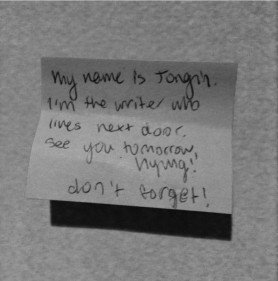 my name is Jongin.
I'm the writer who
lives next door.
see you tomorrow,
hyung!
don't forget!